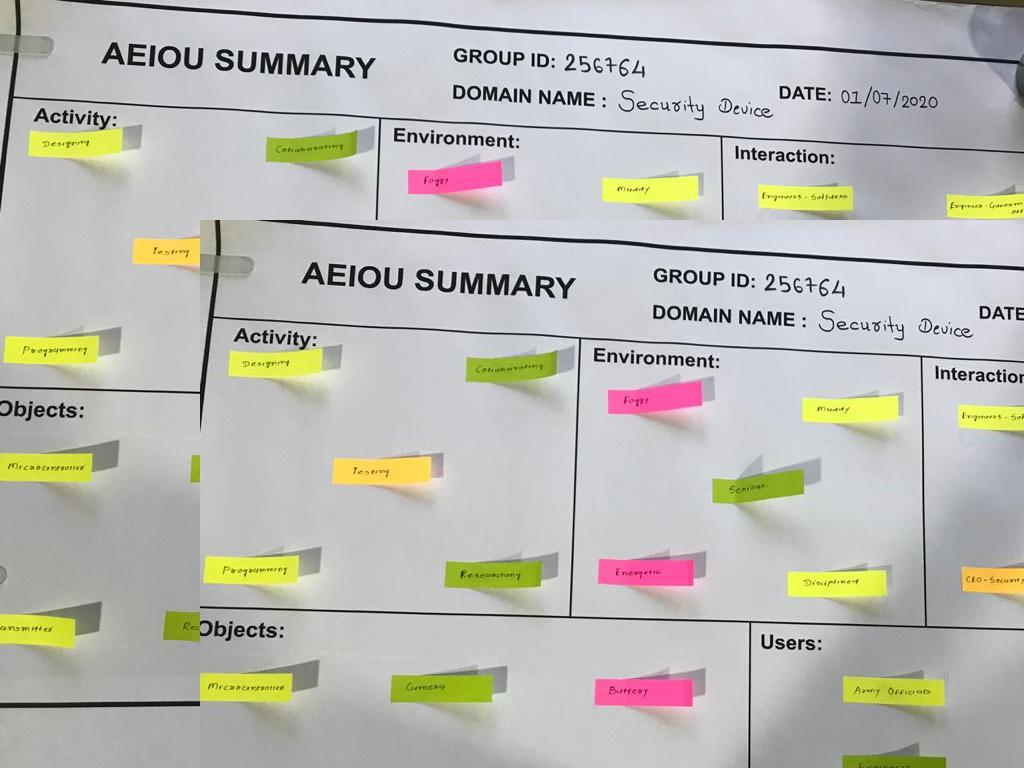 AEIOU SUMMARY
GROUP ID: 256764
DOMAIN NAME : Security Device
DATE: 01/07/2020
Activity:
Designing
Collaborating
Testing
Programming
Environment:
Foggy
Muddy
Interaction:
Engineers-Soldiers
Objects:
Microcontroller
AEIOU SUMMARY
GROUP ID: 256764
DOMAIN NAME : Security Device
DATE
Activity:
Designing
Collaborating
Testing
Programming
Researching
Environment:
Foggy
Muddy
Serious
Energetic
Disciplined
Interaction
Engineers-Sol
CEO-Security
Objects:
Microcontroller
Camera
Battery
Users:
Army Officials